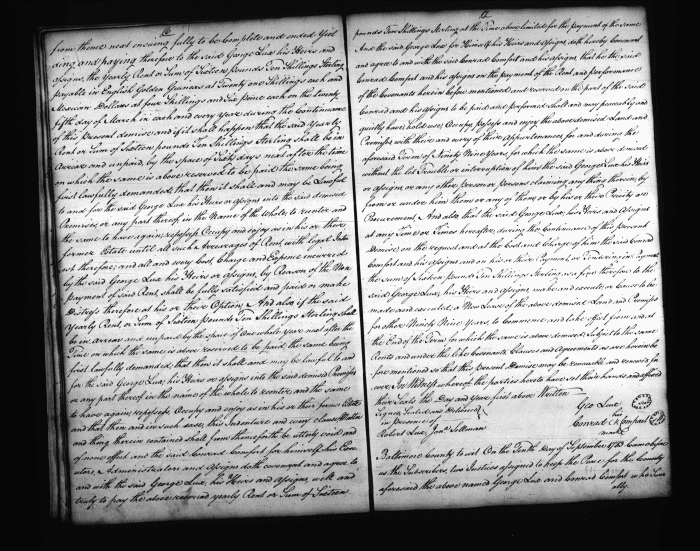 16
from thence next ensuing fully to be Complete and ended Yeil
ding and paying therefore to the said George Lux his Heirs and
Assigns the Yearly Rent or Sum of Sixteen pounds Ten Shillings Sterling
payable in English Golden Guineas at Twenty one Shillings each and
Mexican Dollars at four Shillings and Six pence each on the twenty
fifth day of March in each and every year during the Continuance
of this Present demise and if it shall happen that the said Yearly
Rent or Sum of Sixteen pounds Ten Shillings Sterling shall be in
Arrear and unpaid, by the space of Sixty days next after the time
on which the same is above reserved to be paid the same being
first lawfully demanded, that then it shall and may be Lawful
to and for the said George Lux his Heirs or Assigns into the said demised
Premises or any part thereof, in the Name of the whole to reenter and
the same to have again, repossess Occupy and enjoy as in his or their
former Estate until all such Arrearages of Rent with Legal Inter
est therefore; and all and every Cost Charge and Expence incurred
by the said George Lux his Heirs or Assigns, by Reason of the Non
payment of said Rent, shall be fully satisfied and paid or make
Distress therefore at his or their Option; And also if the said
Yearly Rent or Sum of Sixteen pounds Ten Shillings Sterling Shall
be in Arrear and unpaid by the space of One whole Year next after the
Time on which the same is above reserved to be paid the same being
first lawfully demanded, that then it shall and may be lawful to and
for the said George Lux, his Heirs or Assigns into the said demised Premises
or any part thereof in the name of the whole to reenter, and the same
to have again, repossess Occupy and enjoy as in his or their former Estate
and that then and in such case, this Indenture and every clause Matter
and thing herein contained shall from thenceforth be utterly void and
of none effect and the said Conrad Comfort for himself his Exec
utors, Administrators and Assigns doth covenant and agree to
and with the said George Lux, his Heirs and Assigns well and
truly to pay the above reserved yearly Rent or Sum of Sixteen
17
pounds Ten Shillings Sterling at the Time above limited for the payment of the same
And the said George Lux for Himself his Heirs and Assigns doth hereby Covenant
and agree to and with the said Conrad Comfort and his Assigns that he the said
Conrad Comfort and his Assigns on the payment of the Rent and performance
of the Covenants herein before mentioned and reserved on the part of the said
Conrad and his Assigns to be paid and performed shall and may peaceably and
quietly have, hold use, Occupy, Possess and enjoy the above demised Land and
Premises with their and every of their appurtenances for and during the
aforesaid Term of Ninety Nine Years, for which the same is above demised
without the Let Trouble or interruption of him the said George Lux his Heirs
or Assigns or any other person or Persons claiming any thing therein, by
from or under him them or any of them or by his or their Privity or
Procurement, And also that the said George Lux, his Heirs and Assigns
at any Time or Times hereafter, during the Continuance of this present
Demise, on the request and at the Cost and Charge of him the said Conrad
Comfort and his Assigns and on his or their Payment or Tendering in payment
the sum of Sixteen pounds Ten Shillings Sterling as a fine therefore to the
said George Lux, his Heirs and Assigns make and execute or cause to be
made and executed, a New Lease of the above demised Land and Premises
for other Ninety Nine Years, to commence and take effect from and at
the End of the Term for which the same is above demised, subject to the same
Rents and under the like Covenants Clauses and Agreements as are herein be
fore mentioned so that this Present Demise may be renewable and renewed for
ever, In Witness whereof the parties hereto have set their hands and affixed
their Seals the Day and Year first above Written
Signed, Sealed and Delivered
in presence of
Robert Lux Jont Sellman
Geo Lux
his
Conrad X Comfort
mark
Baltimore County to wit On the Tenth Day of September 1783 Came before
us the Subscribers, two Justices assigned to keep the Peace for the County
aforesaid the above named George Lux and Conrad Comfort who Seve
ally